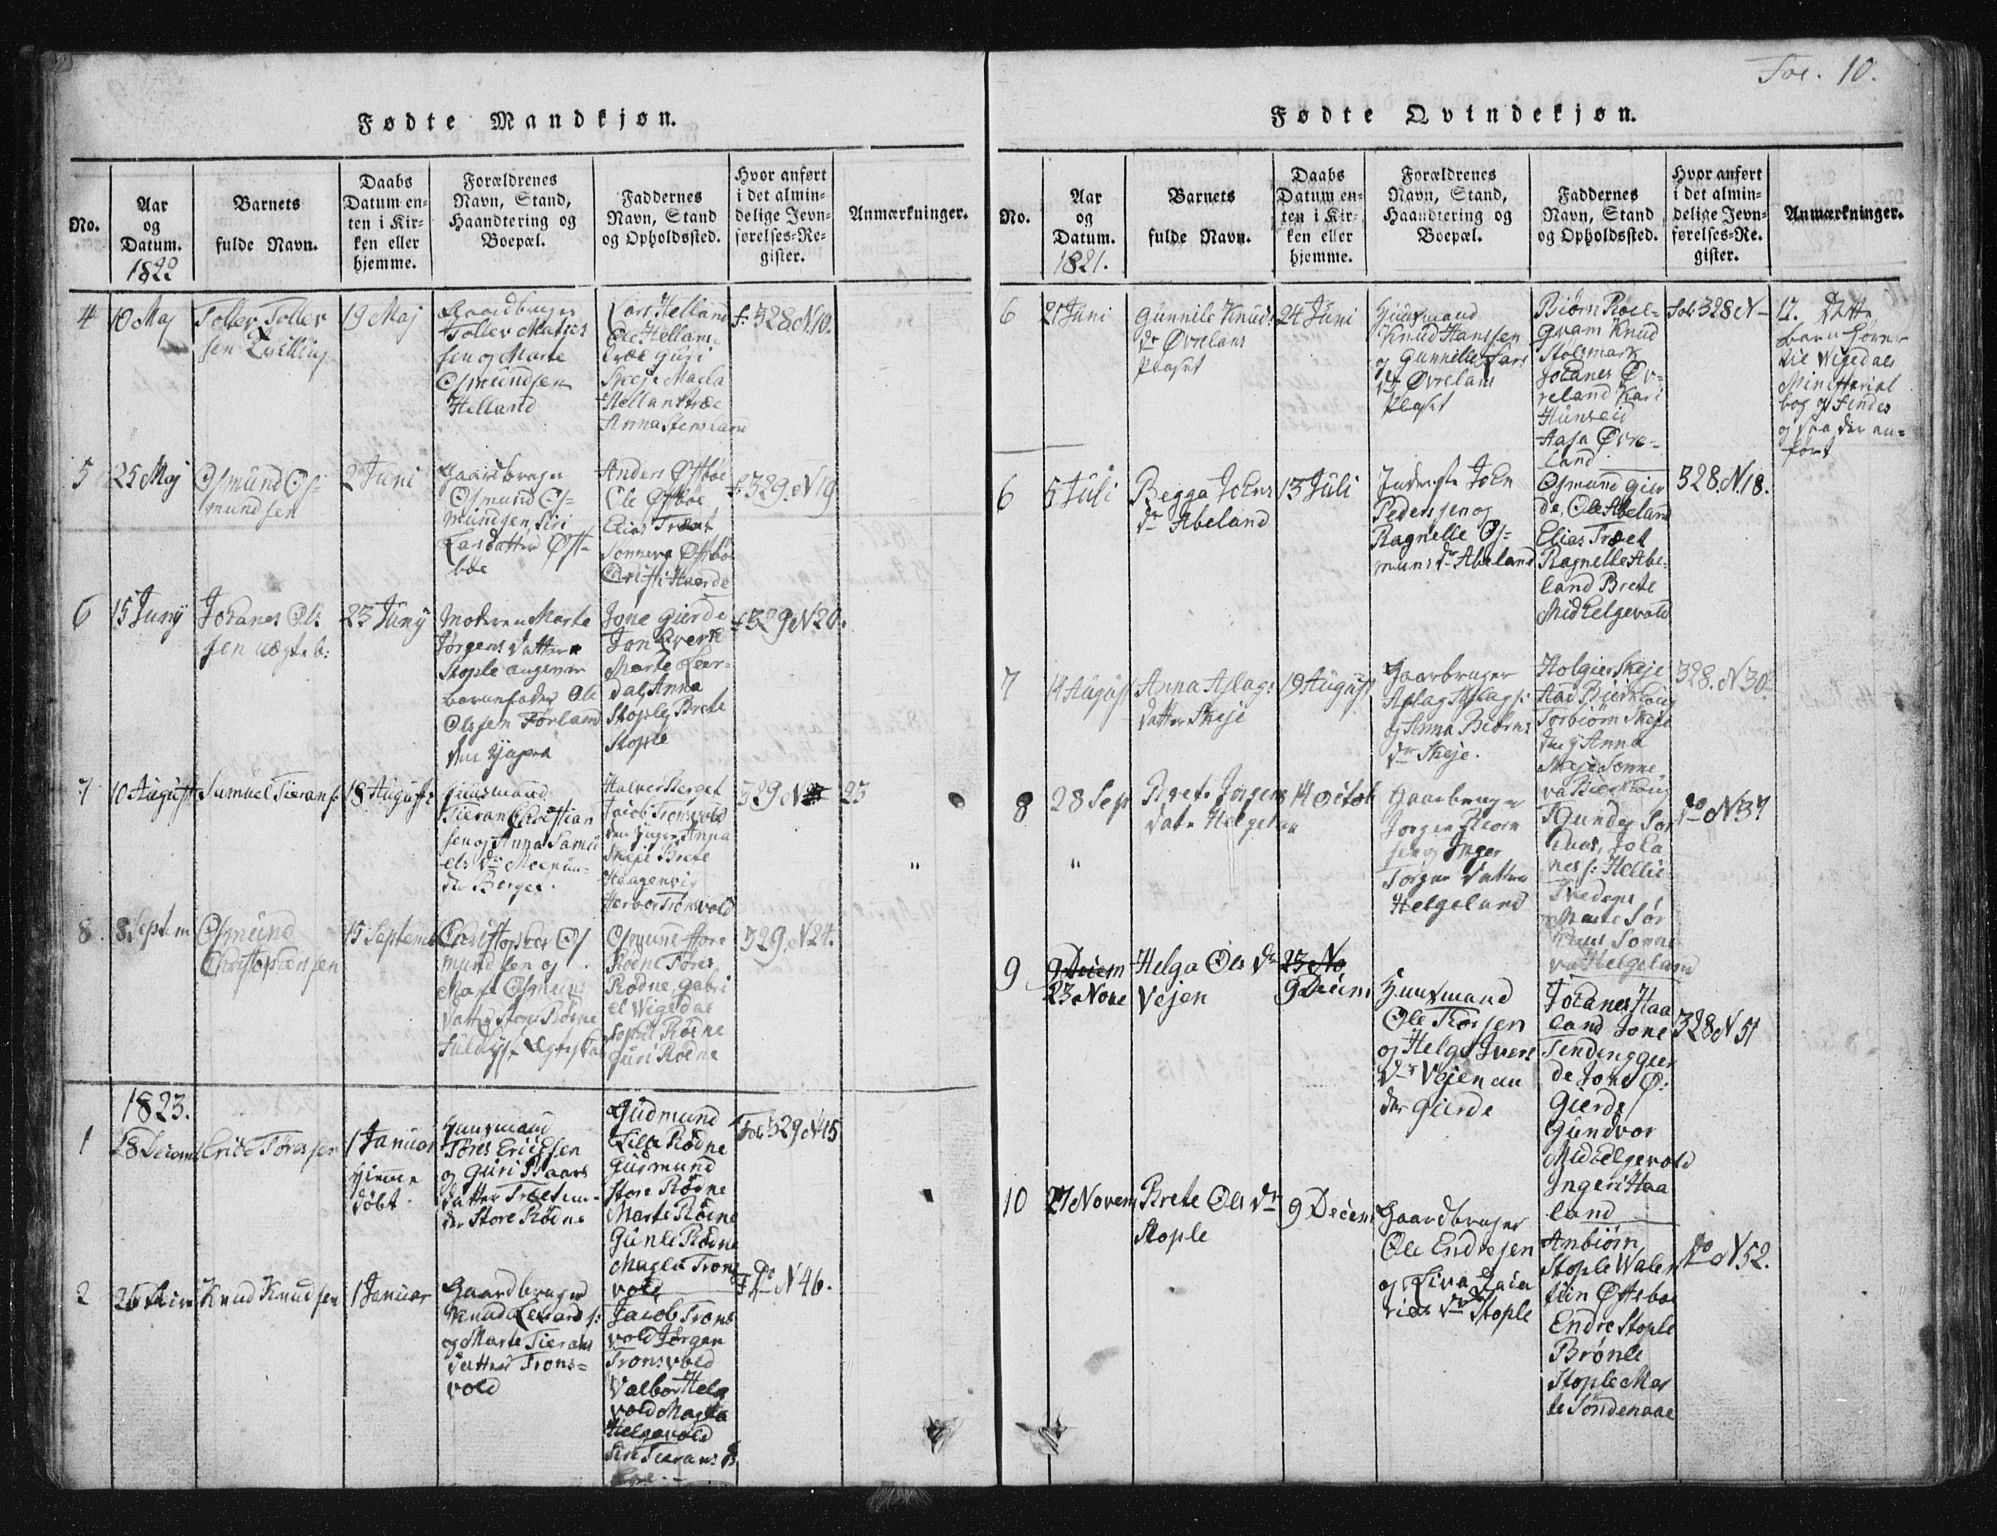 Fol. 10.
Fødte Mandkjøn.
No.
Aar
og
Datum.
1822
Barnets
fulde Navn.
Daabs
Datum en-
ten i Kir-
ken eller
hjemme.
Forældrenes
Navn, Stand,
Haandtering og
Boepæl.
Faddernes
Navn, Stand
og Opholdssted.
Hvor anført
i det almin-
delige Jevn-
førelses-Re-
gister.
Anmærkninger.
4
10 Maj
Toller Toller
sen
19 Maj
Gaardbruger
Toller
sen og Marte
Osmundsen
Helland
Lars Helland
Ole Hellans-
træe Guri
Skeje
Hellanstræe
Anna Stensland
f: 328 N 10.
5
25 Maj
Osmund Os-
mundsen
2 Juni
Gaardbruger
Osmund Os-
mundsen, Siri
Larsdatter Øst-
bøe
Anders Østbøe
Ole Østbøe
Elias Træet
Sonneva Østbøe
f: 329. N 19
6
15 Juny
Johanes Ols
sen uægte b:
23 Juny
Moderen Marte
Jørgensdatter
Stople angiver
barnefader Ole
Olssen Førland
den yngere
Jone Gierde
Jon
Marte Leer-
dal Anna
Stople Brete
Stople
f 329 N 20.
7
10 August
Samuel Tierans:
18 August
Huusmand
Tieran Christian
sen og Anna Samu
els dr
Berget.
Halvor Berget
Jacob Tronsvold
den ynger Anna
Skeje Brete
Haagenvig
Tronsvold
329 N
23
8
8 Septem
Osmund
Christophersen
15 Septemb
Christopher Os
mundsen og
Osmuns
datter Store Rødne
Osmund Store
Rødne Tøres
Rødne, Gabri
el Wigedal
Rødne
Guri Rødne
329. N 24.
1823.
1
28 Decem
Erick Tøressen
1 Januar
Hjemme
døbt.
Huusmand
Tøres Ericksen
og Guri Baars
datter Træet un-
der Store Rødne
Gudmund
Lille Rødne
Gudmund
Store Rødne
Marte Rødne
Gunle Rødne
Magla Trons
vold
Fol 329 N 45
2
Knud Knudsen
1 Januar
Gaardbruger
Knud
og Marte Tierans
datter Trons-
vold
Jacob Trons
vold Jørgen
Tronsvold
Valbor Helg
vold Magla
Helgevold
Siri Tierans
Do N 46.
Fødte Qvindekjøn.
No.
Aar
og
Datum.
1821.
Barnets
fulde Navn.
Daabs
Datum en-
ten i Kir-
ken eller
hjemme.
Forældrenes
Navn, Stand,
Haandtering og
Boepæl.
Faddernes
Navn, Stand
og Opholdssted.
Hvor anført
i det almin-
delige Jevn-
førelses-Re-
gister.
Anmærkninger.
6
21 Juni
Gunnile Knuds
dr Øvrelans
Plaset
24 Juni
Huusmand
Knud Hanssen
og Gunnile Lars
dr Øvrelans
Plaset
Biørn Roel-
qvam Knud
Stolsmark
Johanes Øv-
reland Kari
Hunseid
Aasa Øvre-
land
Fol 328 N
12. Dette
barn hører
til Wigedals
Ministerial
bog og findes
og saa der an-
ført
6
5 Juli
Begga Johns
dr Abeland
13 Juli
Inderste John
Pederssen og
Ragnelle Os-
muns dr Abeland
Osmund Gier
de, Ole Abeland
Elias Træet
Ragnelle Abe-
land Brete
Midhelgevold
328. N 18.
7
14 August
Anna Aslags
datter Skeje
19 August
Gaarbruger
Aslag Aslags:
og Anna Biørns
dr Skeje.
Holgier Skeje
Torbiørn Skeje
den y Anna
Skeje Sonne
va
328. N 30
8
28 Sep
Brete Jørgens
datr Helgelan
14 Octob
Gaarbruger
Jørgen Biørn
sen og Inger
Tørgers datter
Helgeland
Joha
nes
Marte Sør
huus Sonne
va Helgeland
do N 37
9
9 Decem
23 Nove
Helga Ols dr
Vejen
23 No
9 Decem
Huusmand
Ole Torsen
og Helga Ivers
dr Vejen un
der Gierde
Johanes Haa
land Jone
Gier
de Jone Ø:
Gierde
Gundvor
Midhelgevold
Ingeri Haa
land
328 N 51
10
27 Novem
Brete Ols dr
Stople
9 Decem
Gaardbruger
Ole Endresen
og Siva Zaca
rias dr Stople
Anbiørn
Stople
Østebøe
Endre Stople
Brønle
Stople Mar
te Søndenaae
do N 52.